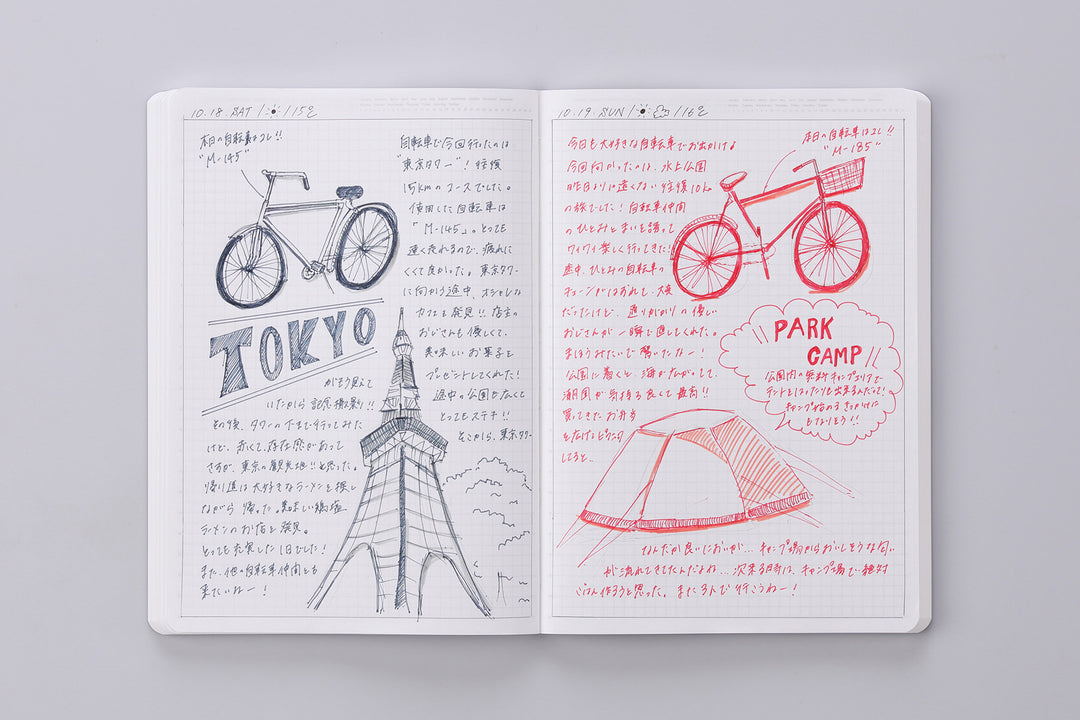 10.18. SAT / / 15℃
本日の自転車はコレ!!
"M-145"
自転車で今回行ったのは
"東京タワー"! 往復
15kmのコースでした。
使用した自転車は
「M-145」。とっても
速く走れるので、疲れに
くくて良かった。東京タワー
に向かう途中、オシャレな
カフェも発見!! 店主の
おじさんも優しくて、
美味しいお菓子を
プレゼントしてくれた!
途中の公園も広くて
とってもステキ!!
そこから、東京タワー
TOKYO
がもう見えて
いたから 記念撮影!!
その後、タワーの下まで行ってみた
けど、赤くて存在感があって
さすが、東京の観光地!!と思った。
帰り道は大好きなラーメンを探し
ながら 帰った。美味しい
ラーメンのお店を発見。
とっても充実した1日でした!
また、他の自転車仲間とも
来たいねー!
10.19. SUN / / 16℃
今日も大好きな自転車でお出かけ♪
今回向かったのは、水上公園
昨日よりは遠くない 往復10km
の旅でした! 自転車仲間
のひとみとまいを誘って
ワイワイ楽しく行ってきた!
途中、ひとみの自転車の
チェーンがはずれて、大変
だったけど、通りがかりの優しい
おじさんが一瞬で直してくれた。
まほうみたいで驚いたなー!
公園に着くと、海が広がってて、
潮風が気持ち良くて最高!!
買ってきたお弁当
を広げて
してると..
本日の自転車はコレ!!
"M-185"
PARK
CAMP
公園内の無料キャンプエリアで
テントをはったりも出来るんだって!
キャンプ始めるきっかけに
もなりそう!!
なんだか良いにおいが... キャンプ場からおいしそうな匂い
が流れてきてたんだよね... 次来る時は、キャンプ場で絶対
ごはん作ろうと思った。また3人で行こうねー!